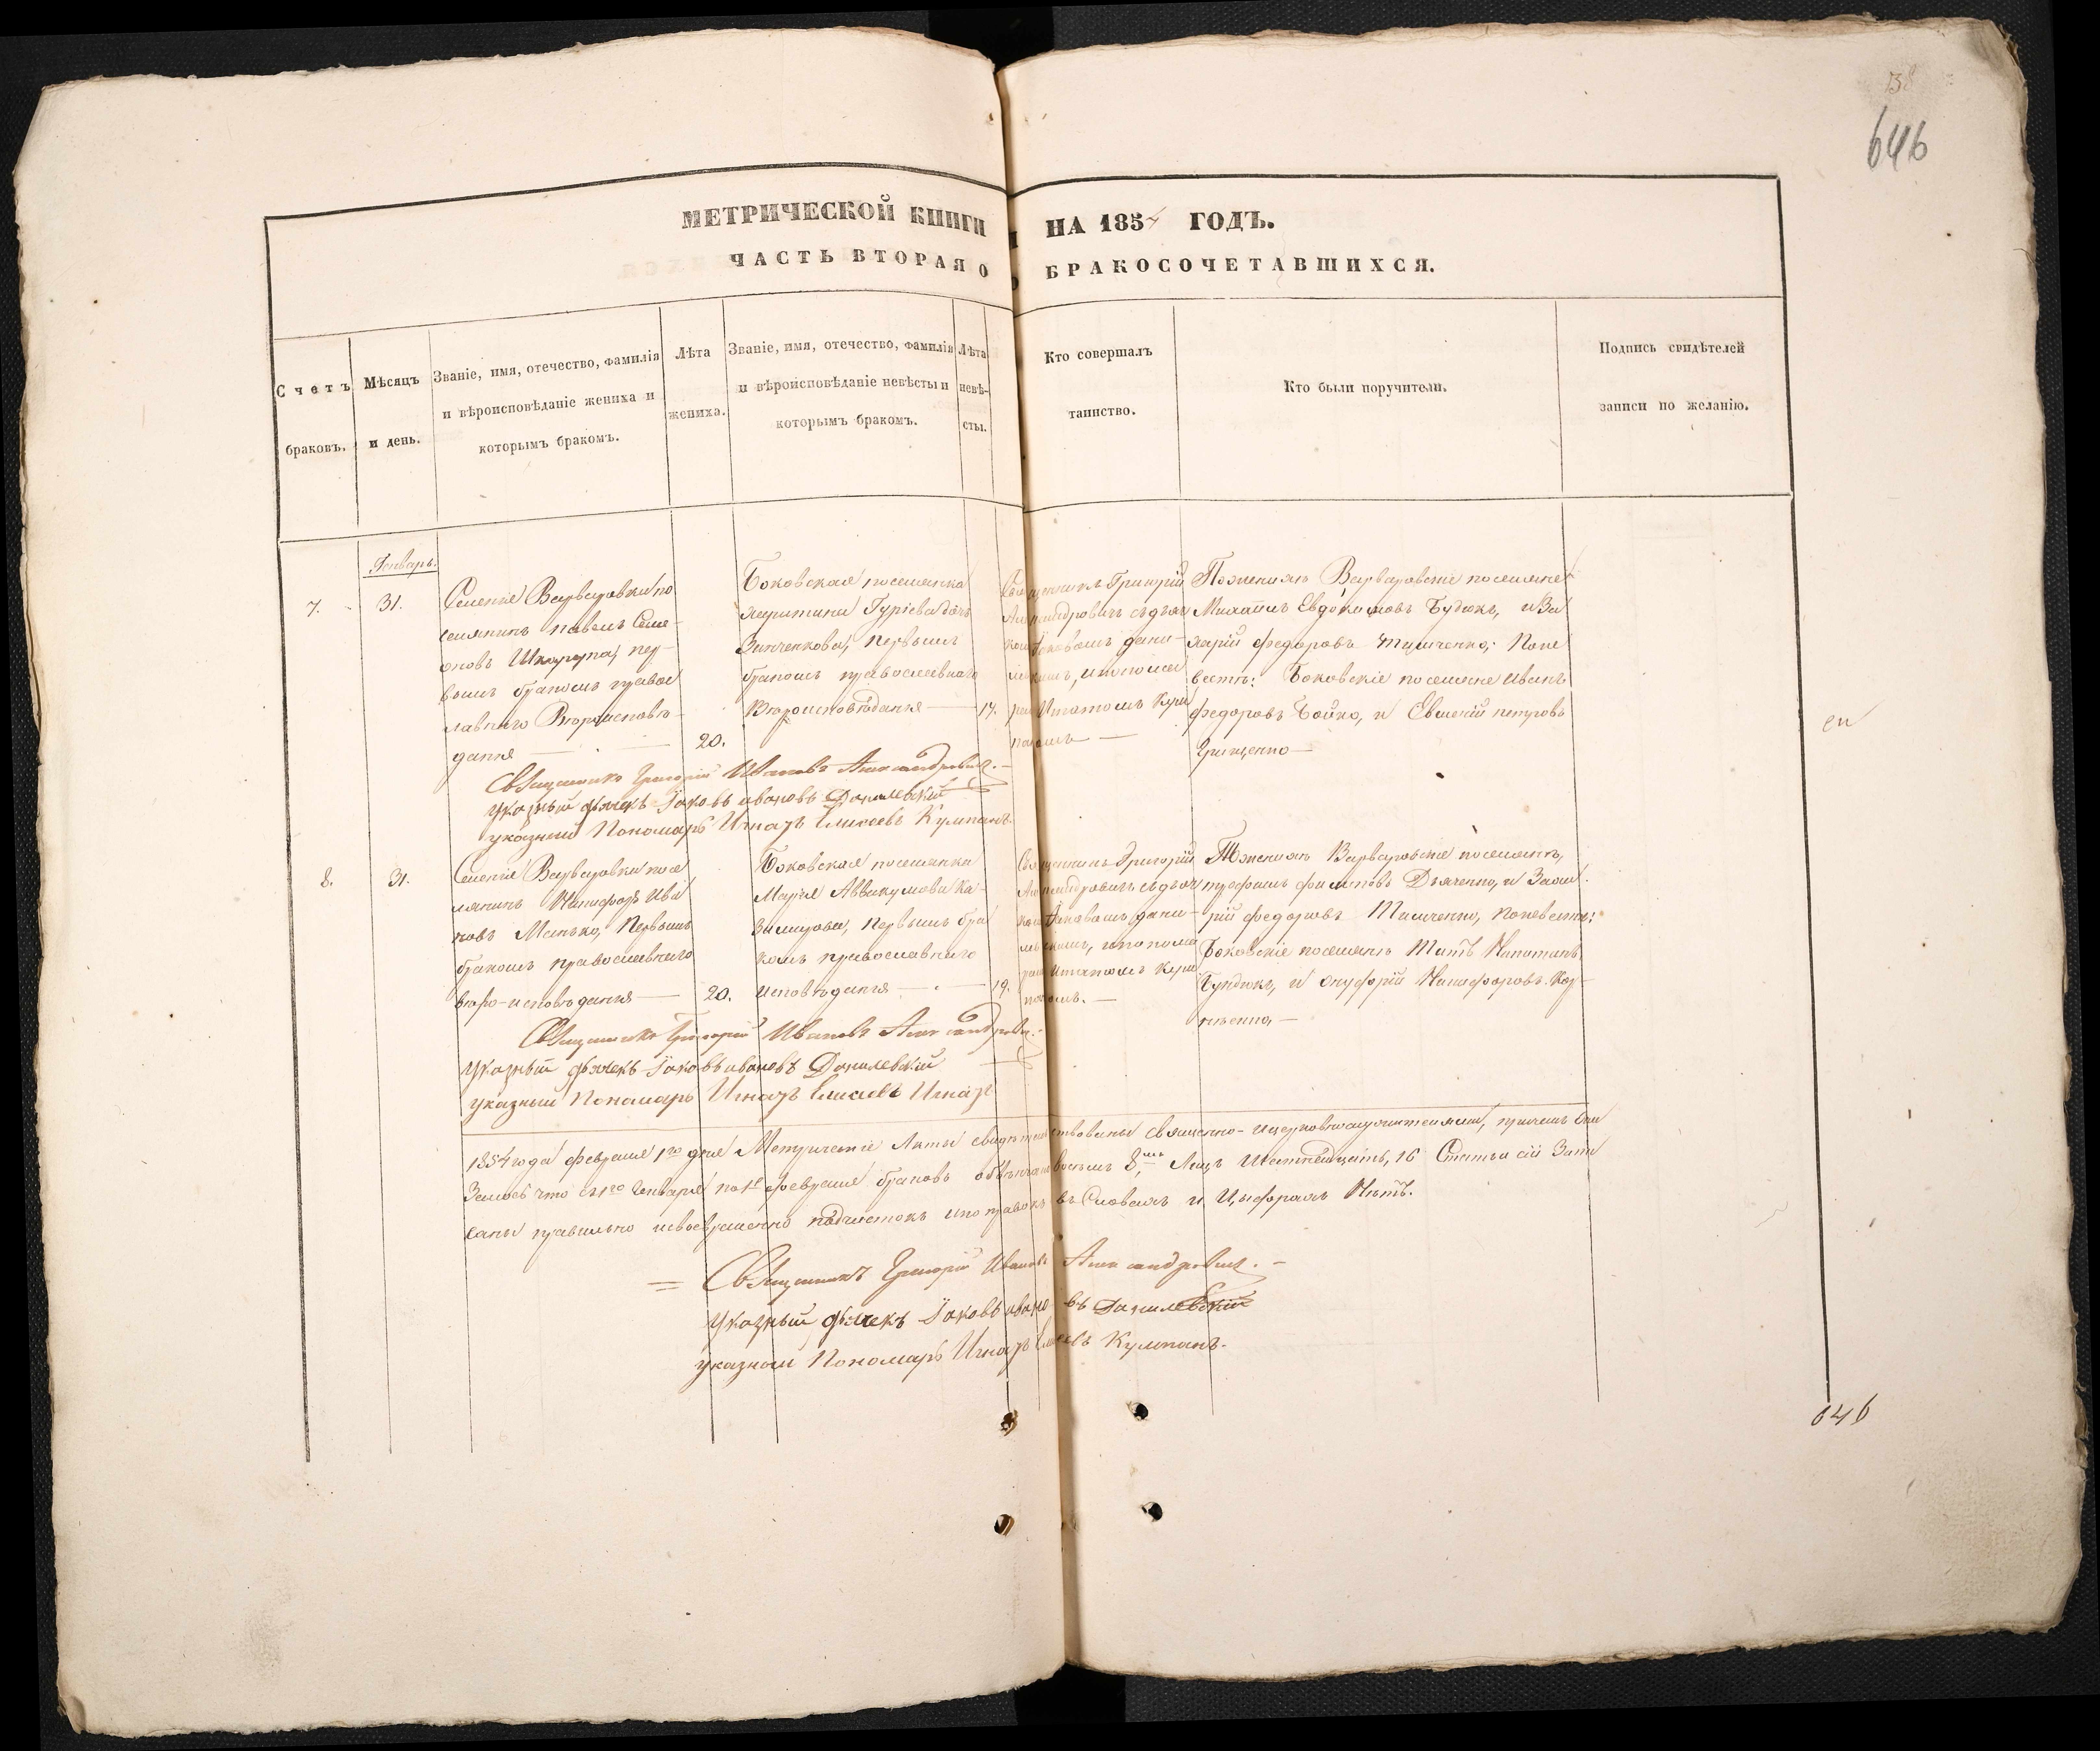 646
МЕТРИЧЕСКОЙ КНИГИ НА 1854 ГОДЪ.
ЧАСТЬ ВТОРАЯ О БРАКОСОЧЕТАВШИХСЯ.
Счетъ
браковъ.
Мѣсяцъ
и день.
Званіе, имя, отечество, фамилія
и вѣроисповѣданіе жениха и
которымъ бракомъ.
Лѣта
жениха.
Званіе, имя, отечество, фамилія
и вѣроисповѣданіе невѣсты и
которымъ бракомъ.
Лѣта
невѣ-
сты.
Кто совершалъ
таинство.
Кто были поручители.
Подпись свидѣтелей
записи по желанію.
Генварь.
7.
31.
Селенія Варваровки по
селянинъ Павелъ Семе-
новъ пер-
вымъ бракомъ правос
лавнаго Вѣроисповѣ-
данія
20.
Боковская поселянка
Харитина Гуріева дочь
Зинченкова, первымъ
бракомъ православнаго
Вѣроисповѣданія
17.
Григорій
Александровичъ съ дьяч
комъ Іаковомъ Дани-
и понома
Игнатомъ Кул
паномъ
По женихѣ Варваровскіе поселяне
Михаилъ Евдокимовъ и За
харій Федоровъ Тимченко; По не
вестѣ: Боковскіе поселяне Иванъ
Федоровъ Бойко, и Евсеній Петровъ
Грищенко
Священникъ Григорій Ивановъ Александровичъ.
указный дьячекъ Іаковъ Ивановъ Данилевскій
указный Пономарь Игнатъ Елисеевъ Кулпанъ.
8.
31.
Селенія Варваровки посе
лянинъ Никифоръ Ива
новъ Манько, Первымъ
бракомъ православнаго
вѣро-исповѣданія
20.
Боковская поселянка
Марія Аввакумова Ка-
Первымъ бра
комъ православнаго
исповѣданія
19.
Григорій
Александровичъ съ дьяч
комъ Іаковомъ Дани-
и понома
Игнатомъ Кул
паномъ.
По женихѣ Варваровскіе поселяне,
Трофимъ Филиповъ Дьяченко, и Заха
рій Федоровъ Тимченко, По невестѣ:
Боковскіе поселяне
и Онуфрій Никифоровъ Кор-
нѣенко,
Священникъ Григорій Ивановъ Александрови.
Указный дьячекъ Іаковъ Ивановъ Данилевскій
указный Пономарь Игнатъ Елисеевъ Игнатъ
1854 года февраля 1го дня Метрическіе Акты свидѣтельствованы священно-и церковнослужителями, при чемъ Ока
залось что съ 1го Генваря по 1е февраля браковъ обвѣнчано восемь 8, Лицъ Шестнадцать, 16 Статьи сіи Запи
саны правильно и своевременно подчистокъ и поправокъ въ Словахъ и Цыфрахъ Нѣтъ.
Священникъ Григорій Ивановъ Александровичъ.
Указный дьячекъ Іаковъ Ивановъ Данилевскій
указный Пономарь Игнатъ Елисеевъ Кулпанъ.
646